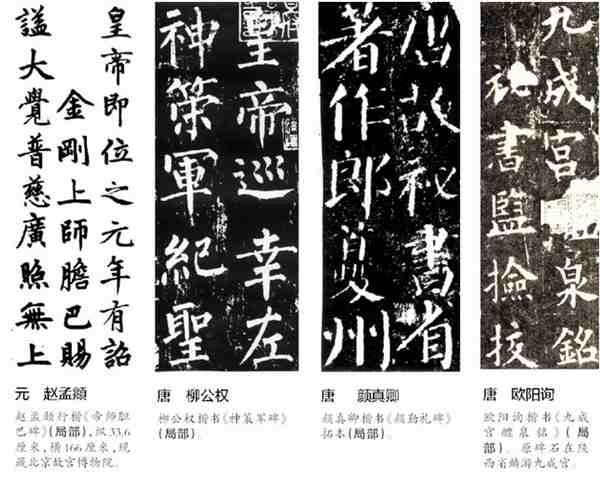 皇帝即位之元年有詔
金剛上師膽巴賜
謚大覺普慈廣照無上
皇帝巡幸左
神策軍紀聖
唐故秘書省
著作郎夔州
九成宮醴泉銘
秘書監撿挍
元 赵孟頫
赵孟頫行楷《帝师胆
巴碑》(局部),纵33.6
厘米,横166厘米,现
藏北京故宫博物院。
唐 柳公权
柳公权楷书《神策军碑》
(局部)。
唐 颜真卿
颜真卿楷书《颜勤礼碑》
拓本(局部)。
唐 欧阳询
欧阳询楷书《九成
宫醴泉铭》(局
部)。原碑石在陕
西省麟游九成宫。